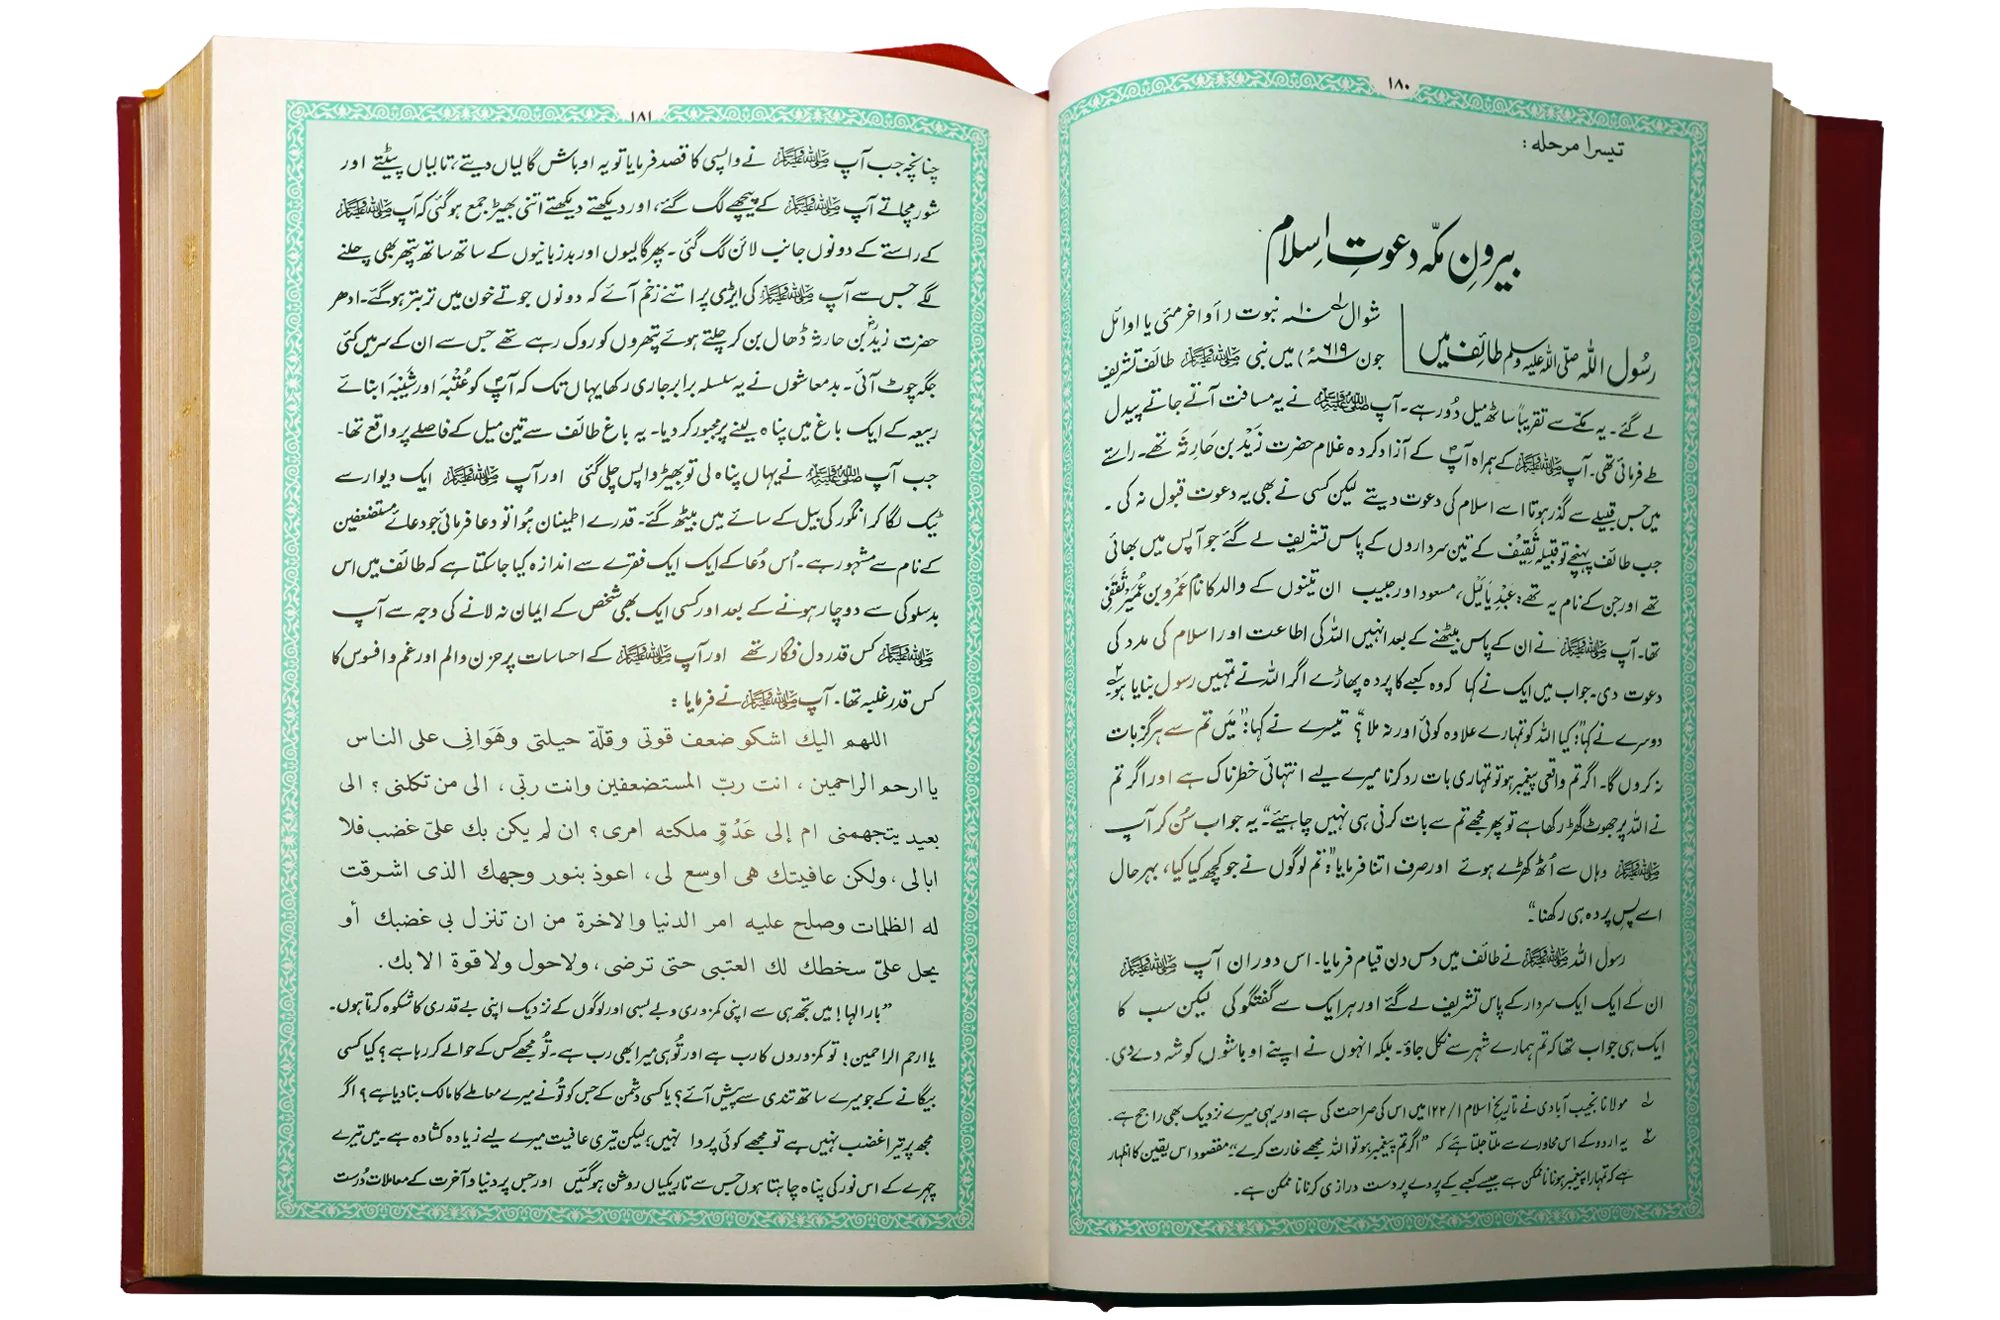 ۱۸۰
تیسرا مرحلہ:
بیرونِ مکّہ دعوتِ اِسلام
رسُول اللہ صلی اللہ علیہ وسلم طائف میں
شوال ۱۰ نبوت (اواخر مئی یا اوائل
جون ۶۱۹ء) میں نبی ﷺ طائف تشریف
لے گئے۔ یہ مکّے سے تقریباً ساٹھ میل دُور ہے۔ آپ ﷺ نے یہ مسافت آتے جاتے پیدل
طے فرمائی تھی۔ آپ ﷺ کے ہمراہ آپؐ کے آزاد کردہ غلام حضرت زَیْد بن حَارِثَہ تھے۔ راستے
میں جس قبیلے سے گذر ہوتا اسے اسلام کی دعوت دیتے لیکن کسی نے بھی یہ دعوت قبول نہ کی۔
جب طائف پہنچے تو قبیلہ ثَقِیْف کے تین سرداروں کے پاس تشریف لے گئے جو آپس میں بھائی
تھے اور جن کے نام یہ تھے: عَبْدِ یَالِیْل، مسعود اور حبیب ان تینوں کے والد کا نام عَمْرو بن عُمَیْر ثَقَفِی
تھا۔ آپ ﷺ نے ان کے پاس بیٹھنے کے بعد انہیں اللہ کی اطاعت اور اسلام کی مدد کی
دعوت دی۔ جواب میں ایک نے کہا کہ وہ کعبے کا پردہ پھاڑے اگر اللہ نے تمہیں رسول بنایا ہو۔۲
دوسرے نے کہا: "کیا اللہ کو تمہارے علاوہ کوئی اور نہ ملا؟" تیسرے نے کہا: "میں تم سے ہرگز بات
نہ کروں گا۔ اگر تم واقعی پیغمبر ہو تو تمہاری بات رد کرنا میرے لیے انتہائی خطرناک ہے اور اگر تم
نے اللہ پر جھوٹ گھڑ رکھا ہے تو پھر مجھے تم سے بات کرنی ہی نہیں چاہیئے۔" یہ جواب سُن کر آپ
ﷺ وہاں سے اُٹھ کھڑے ہوئے اور صرف اتنا فرمایا: "تم لوگوں نے جو کچھ کیا کیا، بہرحال
اسے پسِ پردہ ہی رکھنا۔"
رسول اللہ ﷺ نے طائف میں دس دن قیام فرمایا۔ اس دوران آپ ﷺ
ان کے ایک ایک سردار کے پاس تشریف لے گئے اور ہر ایک سے گفتگو کی لیکن سب کا
ایک ہی جواب تھا کہ تم ہمارے شہر سے نکل جاؤ۔ بلکہ انہوں نے اپنے اوباشوں کو شہ دے دی۔
۱ مولانا نجیب آبادی نے تاریخِ اسلام ۱/۱۲۲ میں اس کی صراحت کی ہے اور یہی میرے نزدیک بھی راجح ہے۔
۲ یہ اردو کے اس محاورے سے ملتا جلتا ہے کہ "اگر تم پیغمبر ہو تو اللہ مجھے غارت کرے۔" مقصود اس یقین کا اظہار
ہے کہ تمہارا پیغمبر ہونا ناممکن ہے جیسے کعبے کے پردے پر دست درازی کرنا ناممکن ہے۔
۱۸۱
چنانچہ جب آپ ﷺ نے واپسی کا قصد فرمایا تو یہ اوباش گالیاں دیتے، تالیاں پیٹتے اور
شور مچاتے آپ ﷺ کے پیچھے لگ گئے، اور دیکھتے دیکھتے اتنی بھیڑ جمع ہو گئی کہ آپ ﷺ
کے راستے کے دونوں جانب لائن لگ گئی۔ پھر گالیوں اور بدزبانیوں کے ساتھ ساتھ پتھر بھی چلنے
لگے جس سے آپ ﷺ کی ایڑی پر اتنے زخم آئے کہ دونوں جوتے خون میں تر بتر ہو گئے۔ ادھر
حضرت زیدؓ بن حارثہ ڈھال بن کر چلتے ہوئے پتھروں کو روک رہے تھے جس سے ان کے سر میں کئی
جگہ چوٹ آئی۔ بدمعاشوں نے یہ سلسلہ برابر جاری رکھا یہاں تک کہ آپؐ کو عُتْبَہ اور شَیْبَہ ابنائے
ربیعہ کے ایک باغ میں پناہ لینے پر مجبور کر دیا۔ یہ باغ طائف سے تین میل کے فاصلے پر واقع تھا۔
جب آپ ﷺ نے یہاں پناہ لی تو بھیڑ واپس چلی گئی اور آپ ﷺ ایک دیوار سے
ٹیک لگا کر انگور کی بیل کے سائے میں بیٹھ گئے۔ قدرے اطمینان ہُوا تو دعا فرمائی جو دعائے مُستضعفین
کے نام سے مشہور ہے۔ اُس دُعا کے ایک ایک فقرے سے اندازہ کیا جا سکتا ہے کہ طائف میں اس
بدسلوکی سے دوچار ہونے کے بعد اور کسی ایک بھی شخص کے ایمان نہ لانے کی وجہ سے آپ
ﷺ کس قدر دل فگار تھے اور آپ ﷺ کے احساسات پر حزن و الم اور غم و افسوس کا
کس قدر غلبہ تھا۔ آپ ﷺ نے فرمایا:
اللهم اليك اشكو ضعف قوتى وقلّة حيلتى وهَوَانى على الناس
يا ارحم الراحمين، انت ربّ المستضعفين وانت ربّى، الى من تكلنى؟ الى
بعيد يتجهمنى ام إلى عَدُوٍّ ملكته امرى؟ ان لم يكن بك علىّ غضب فلا
ابالى، ولكن عافيتك هى اوسع لى، اعوذ بنور وجهك الذى اشرقت
له الظلمات وصلح عليه امر الدنيا والاخرة من ان تنزل بى غضبك أو
يحل علىّ سخطك لك العتبى حتى ترضى، ولا حول ولا قوة الا بك.
"بارالٰہا! میں تجھ ہی سے اپنی کمزوری و بے بسی اور لوگوں کے نزدیک اپنی بے قدری کا شکوہ کرتا ہوں۔
یا ارحم الراحمین! تو کمزوروں کا رب ہے اور تُو ہی میرا بھی رب ہے۔ تُو مجھے کس کے حوالے کر رہا ہے؟ کیا کسی
بیگانے کے جو میرے ساتھ تندی سے پیش آئے؟ یا کسی دشمن کے جس کو تُو نے میرے معاملے کا مالک بنا دیا ہے؟ اگر
مجھ پر تیرا غضب نہیں ہے تو مجھے کوئی پروا نہیں؛ لیکن تیری عافیت میرے لیے زیادہ کشادہ ہے۔ میں تیرے
چہرے کے اس نور کی پناہ چاہتا ہوں جس سے تاریکیاں روشن ہو گئیں اور جس پر دنیا و آخرت کے معاملات دُرست